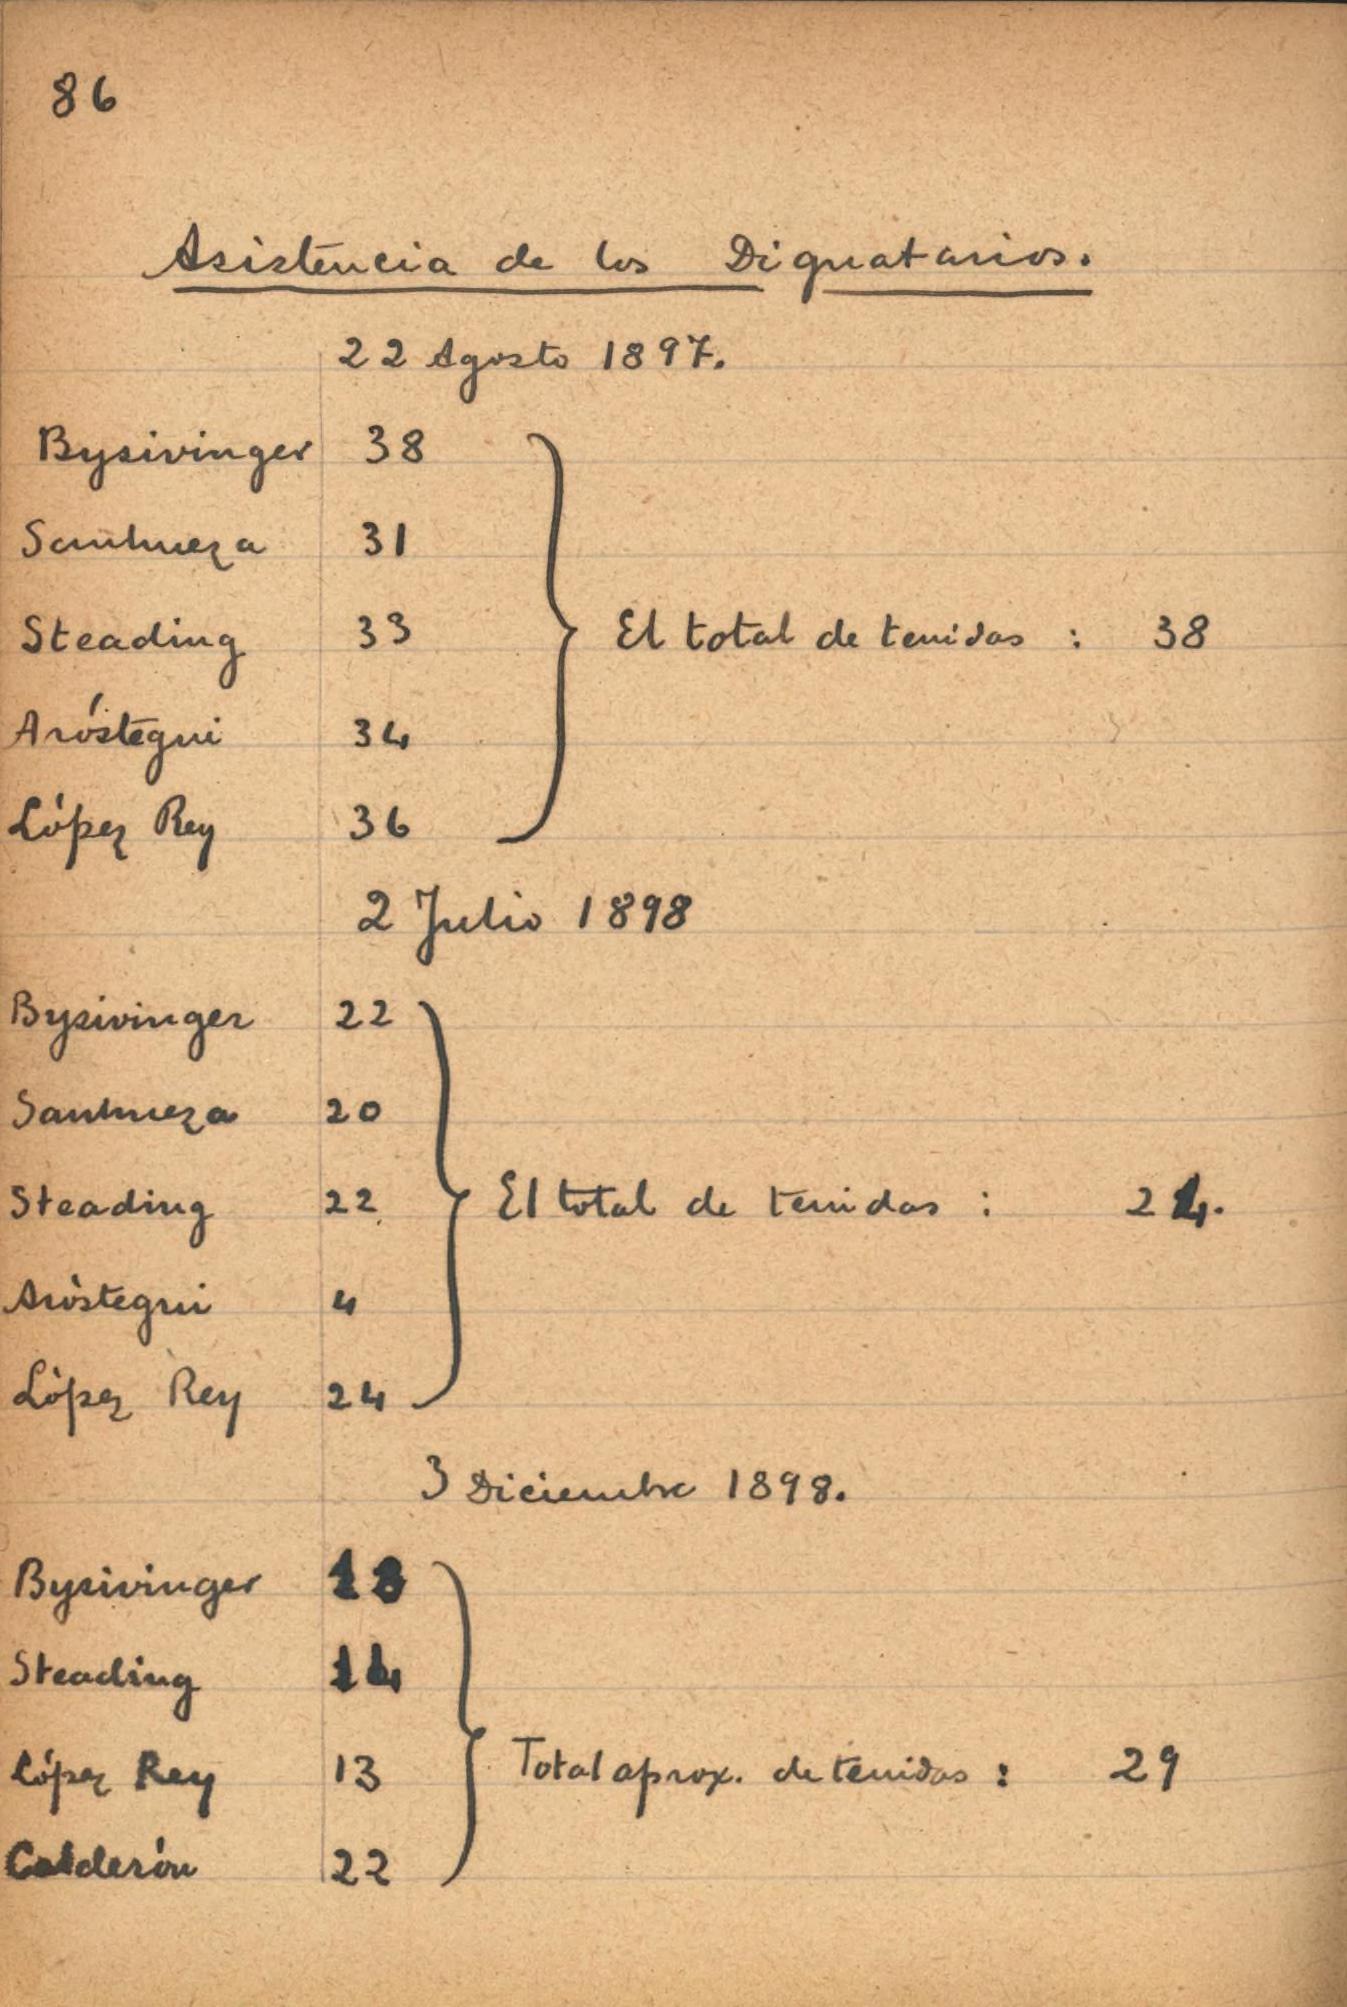 86
Asistencia de los Dignatarios.
22 Agosto 1897.
Bysivinger 38
Sanhueza 31
Steading 33
El total de tenidas : 38
Aróstegui 34
López Rey 36
2 Julio 1898
Bysivinger 22
Sanhueza 20
Steading 22
El total de tenidas : 24.
Aróstegui 4
López Rey 24
3 Diciembre 1898.
Bysivinger 18
Steading 14
López Rey 13
Total aprox. de tenidas : 29
Calderón 22